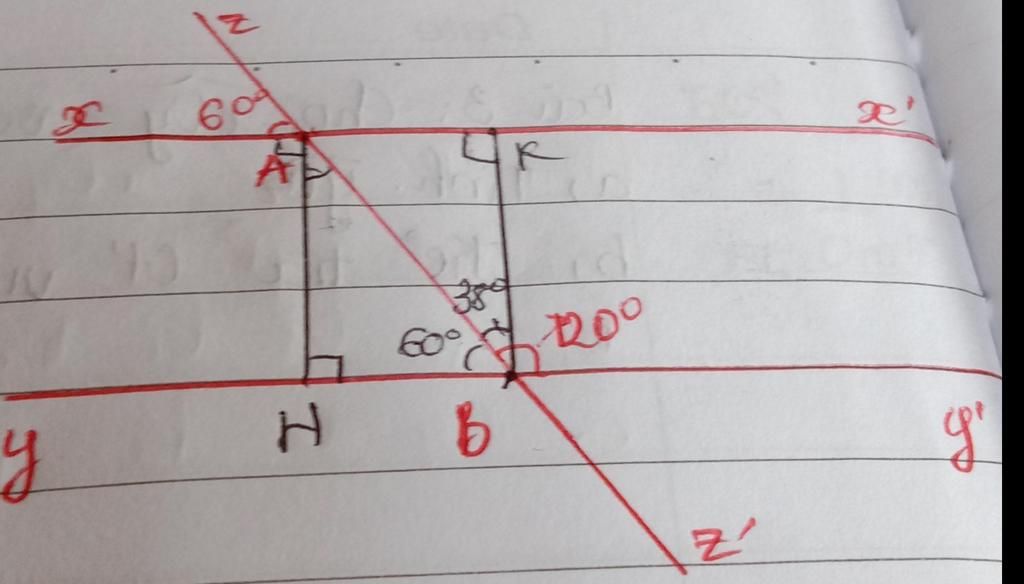 z
x 60° x'
A K
38°
60° 120°
y H B y'
z'